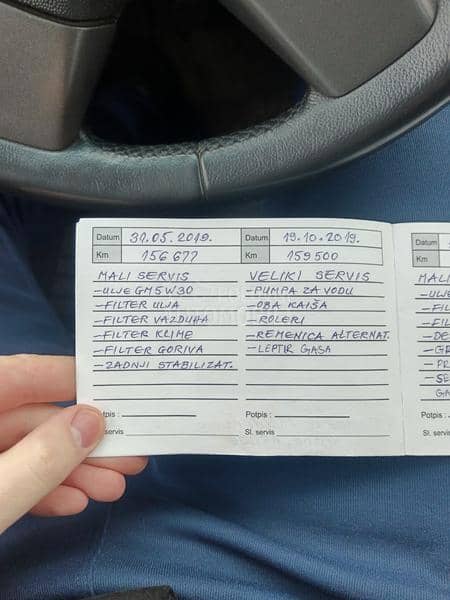 Datum 31.05.2019.
Km 156 677
MALI SERVIS
-ULJE GM5W30
-FILTER ULJA
-FILTER VAZDUHA
-FILTER KLIME
-FILTER GORIVA
-ZADNJI STABILIZAT.
otpis :
servis
Datum 19.10.2019.
Km 159500
VELIKI SERVIS
-PUMPA ZA VODU
-OBA KAIŠA
-ROLERI
-REMENICA ALTERNAT.
-LEPTIR GASA
Potpis :
Sl. servis
Datum
Km
MALI
-ULJE
-FIL
-FIL
-DE
-PR
-SE
GA
Potpis :
Sl. servis